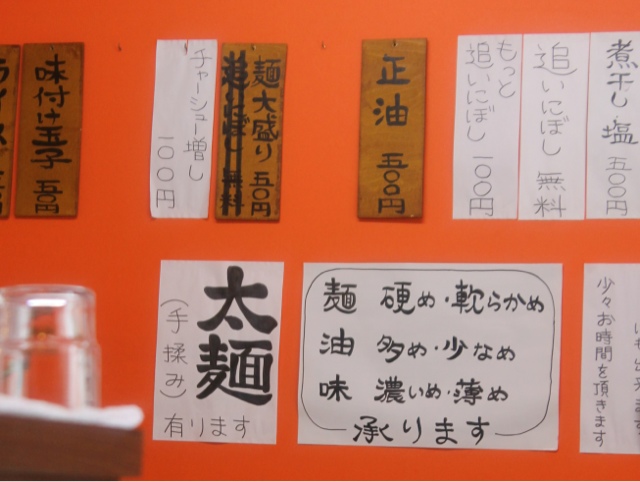 煮干し塩 五〇〇円
追いにぼし 無料
もっと
追いにぼし 一〇〇円
正油 五〇〇円
麺大盛り 五〇円
追いにぼし 無料
チャーシュー増し
一〇〇円
味付け玉子 五〇円
ライス
少々お時間を頂きます
麺 硬め・軟らかめ
油 多め・少なめ
味 濃いめ・薄め
承ります
太麺
(手揉み)
有ります